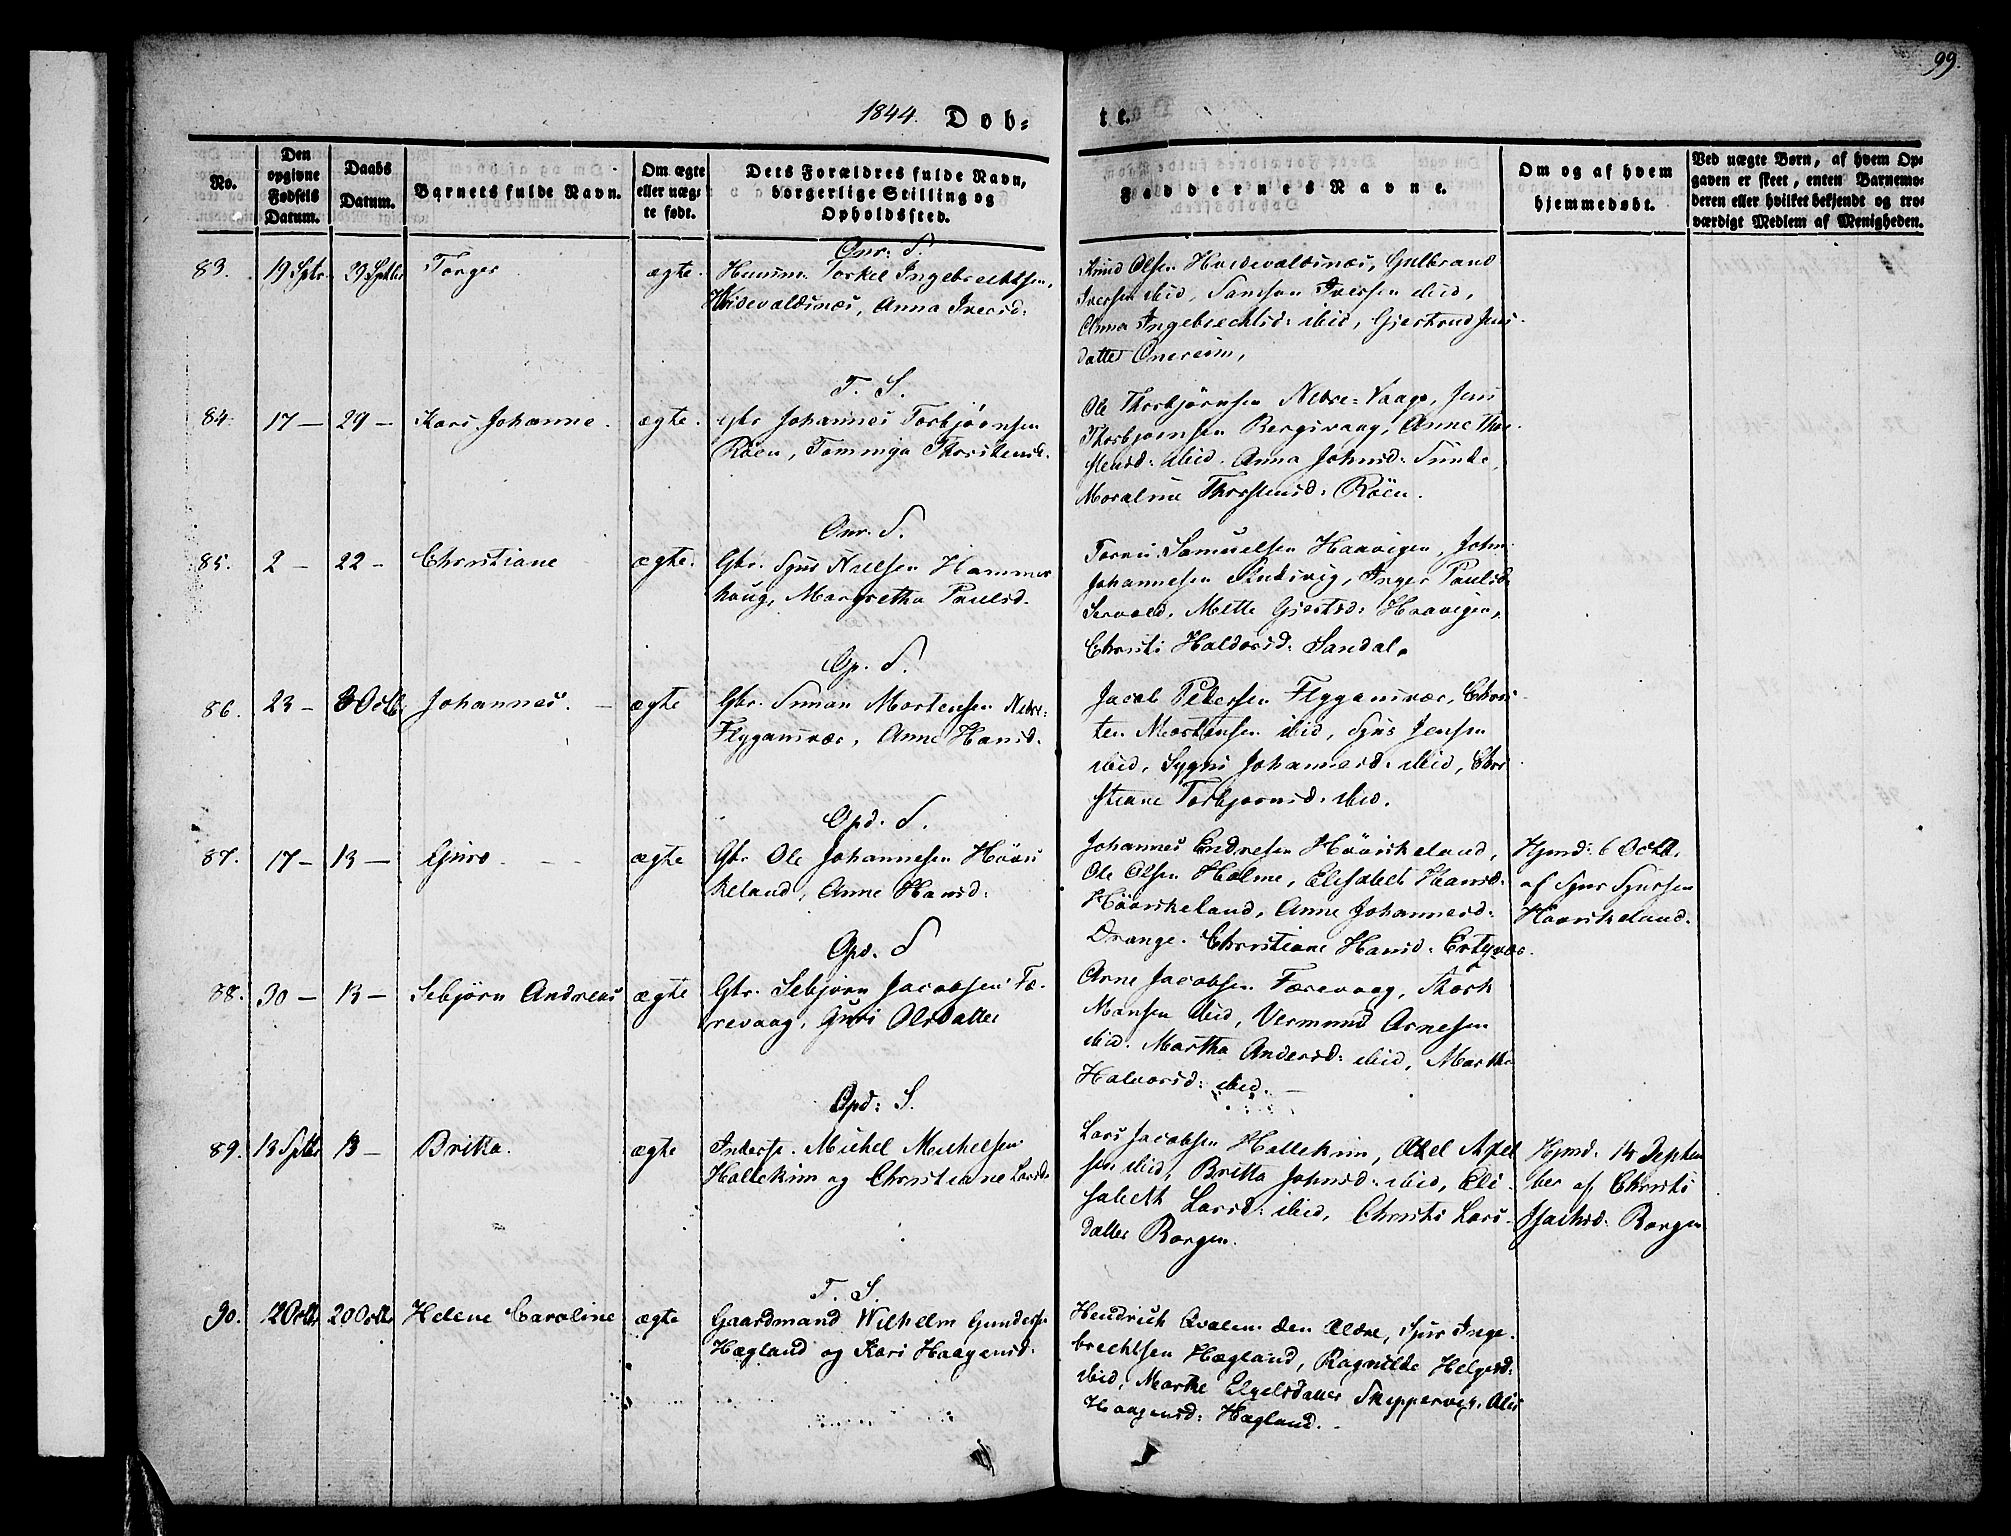 99.
1844. Døb-
te.
No.
Den
opgivne
Fødsels
Datum.
Daabs
Datum.
Barnets fulde Navn.
Om ægte
eller uæg-
te født.
Dets Forældres fulde Navn,
borgerlige Stilling og
Opholdssted.
Faddernes Navne.
Om og af hvem
hjemmedøbt.
Ved uægte Børn, af hvem Op-
gaven er skeet, enten Barnemo-
deren eller hvilket bekjendt og tro-
værdigt Medlem af Menigheden.
83. 19 Sptr. 29 Sptbr Torger ægte.
Onr: S.
Huusm. Torkel Ingebrechtsen,
Hidevaldsnæs, Anna Iversd:
Knud Olsen Hvidevaldsnæs, Gulbrand
Iversen ibid, Samson Iversen ibid,
Anna Ingebrechtsd: ibid, Gjertrud Jens
datter Onereim,
84. 17 — 29 — Kari Johanne. ægte.
T. S.
Gbr Johannes Torbjörnsen
Röen, Tommiga Thorstensd.
Ole Thorbjörnsen Nedre-Vaage, Jens
Thorbjørnsen Bergsvaag, Anne Thor
stensd: ibid. Anna Johnsd: Sunde,
Moraline Thorstensd: Röen.
85. 2 — 22 — Christiane ægte.
Onr. S.
Gbr. Sjur Nielsen Hammer
houg, Margretha Paulsd.
Samuelsen Haavigen, John
Johannesen Sludsvig, Inger Paulsd
Servold, Mette Gjertsd: Haavigen,
Christi Haldorsd: Sandal.
86. 23 — 8 Octb. Johannes. — ægte
Op. S.
Gbr. Simon Mortensen Nedre-
Flygansvær, Anne Hansd.
Jacob Pedersen Flygansvær, Chris
ten Mortensen ibid, Sjur Jensen
ibid, Sygni Johannesd: ibid, Chri
stiane Torbjørnsd: ibid.
87. 17 — 13 — Guro. ægte
Opd. S.
Gbr Ole Johannesen Hövis
keland, Anne Hansd:
Johannes Endresen Höviskeland,
Ole Olsen Holme, Elisabet Hansd:
Höviskeland, Anne Johannesd:
Drange. Christiane Hansd:
Hjmd: 6 Octb.
af Sjur Sjursen
Höviskeland.
88. 30 — 13 — Sebjörn Andreas ægte
Opd. S
Gbr. Sebjørn Jacobsen Fæ-
revaag, Guri Olsdatter
Arne Jacobsen Færevaag,
Monsen ibid, Vermund Arnesen
ibid. Martha Andersd: ibid, Martha
Halvorsd: ibid. —
89. 13 Sptbr 13 — Britha. ægte
Opd: S.
Inderst. Michel Michelsen
Hollekim og Christiane Larsd:
Lars Jacobsen Hollekim, Axel Axel
sen ibid, Britta Johnsd: ibid, Eli-
sabeth Larsd: ibid, Christi Lars-
datter Borgen.
Hjmd: 14 Septem
ber af Christi
Borgen
90. 12 Octbr 20 Octbr Helene Caroline ægte
T. S.
Gaardmand Wilhelm Gunders.
Hægland og Kari Haagensd.
Hendrich Qvalen den Ældre, Sjur Inge-
brechtsen Hægland, Ragnilde Helgesd:
ibid, Marthe Skeppervig. Alis
Haagensd: Hægland.